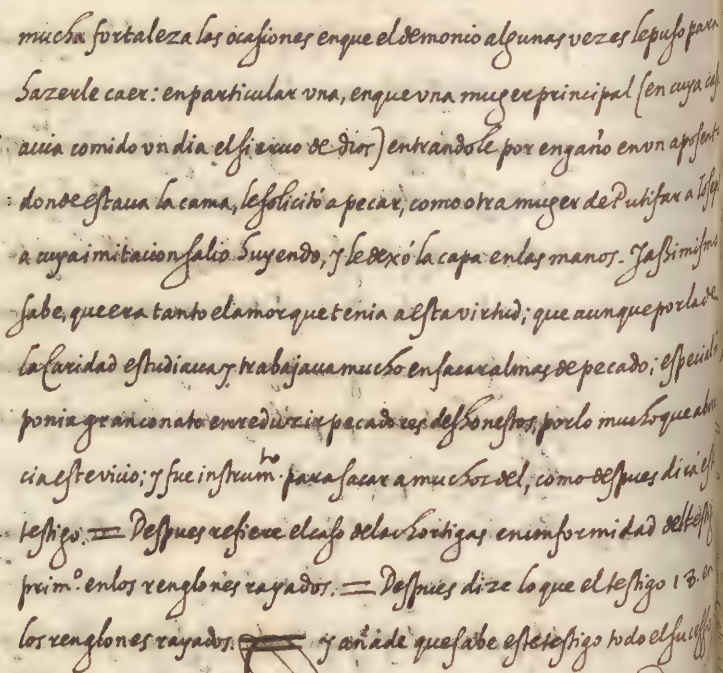 mucha fortaleza las ocasiones en que el demonio algunas vezes le puso para
hazerle caer: en particular vna, en que vna muger principal (en cuya cas
auia comido vn dia el sieruo de dios) entrandole por engaño en vn aposent
donde estaua la cama, le solicitó a pecar, como otra muger de Putifar a Josep
a cuya imitacion salio huyendo, y le dexó la capa en las manos. Y assi mismo
sabe, que era tanto el amor que tenia a esta virtud; que aunque por la de
la Caridad estudiaua y trabajaua mucho en sacar almas de pecado; especial
ponia gran conato en reduzir pecadores deshonestos, por lo mucho que abor
cia este vicio; y fue instrumto. para sacar a muchos del, como despues dirá est
testigo. = Despues refiere el caso de las hortigas en conformidad del testig
primo. en los renglones rayados. = Despues dize lo que el testigo 13. en
los renglones rayados. y añade que sabe este testigo todo el sucesso